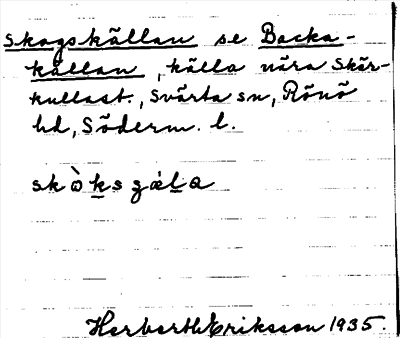 Skogskällan se Backa-
källan, källa nära Skär-
kullast., Svärta sn, Rönö
hd, Söderm. l.
skòksɡála
Herbert Eriksson 1935.